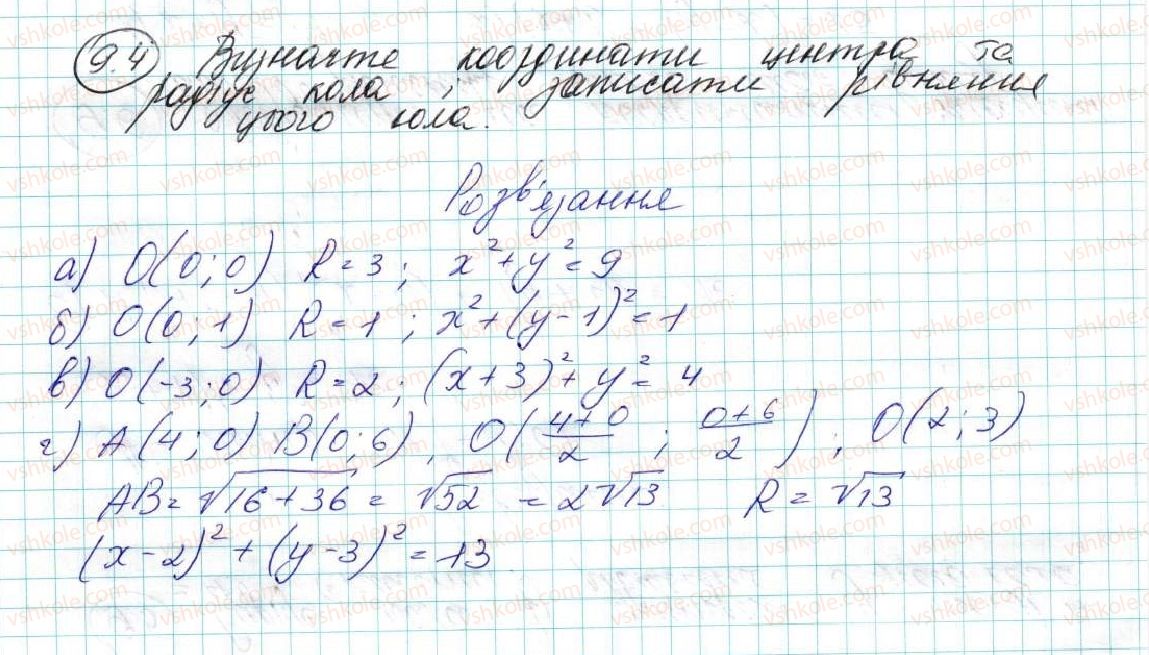 9.4 Визначте координати центра та
радіус кола і записати рівняння
цього кола.
Розв'язання
а) O(0;0) R=3; x²+y²=9
б) O(0;1) R=1; x²+(y-1)²=1
в) O(-3;0) R=2; (x+3)²+y²=4
г) A(4;0) B(0;6), O((4+0)/2; (0+6)/2); O(2;3)
AB=√(16+36)=√52=2√13 R=√13
(x-2)²+(y-3)²=13
vshkole.com